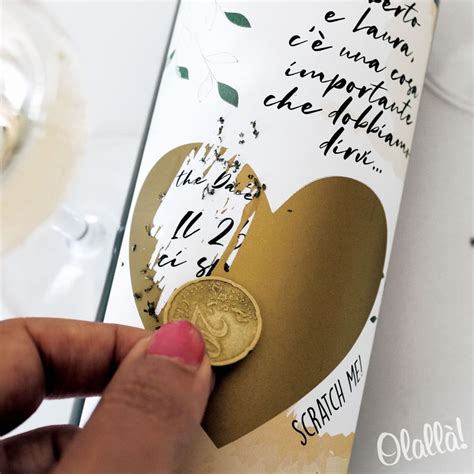 e Laura,
c'è una cosa
importante
che dobbiamo
dirvi...
the Date
Il 2
ci
20
SCRATCH ME!
Olallà!